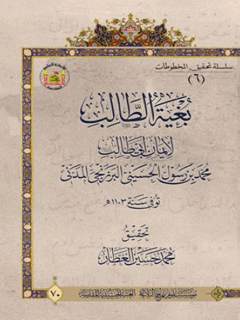 سلسلة تحقيق المخطوطات
(٦)
بُغية الطَّالب
لإيمان أبي طالب
محمد بن رسول الحسيني البرزنجي المدني
توفي سنة ١١٠٣ھ
تحقيق
محمد حسين العطار
٧٠